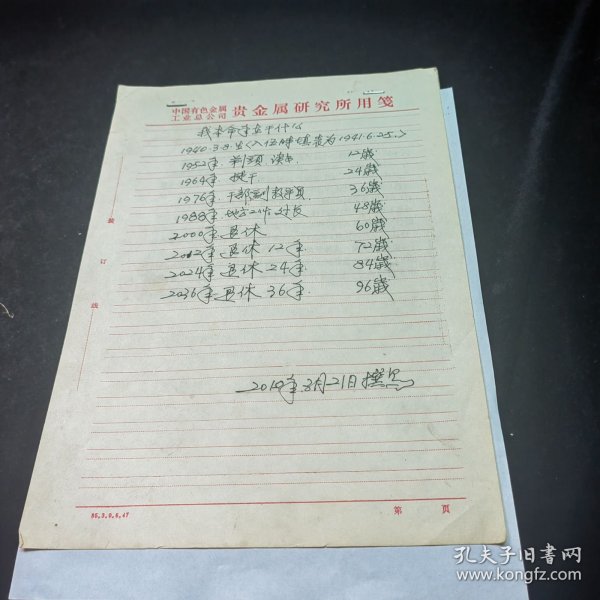 中国有色金属
工业总公司 贵金属研究所用笺
我本命年在干什么
1940.3.8.生(入伍时填表为1941.6.25.)
1952年. 读书 12歲
1964年 提干 24歲
1976年 干部 教导员 36歲
1988年 地方工作 48歲
2000年 退休 60歲
2012年 退休 12年. 72歲
2024年 退休 24年. 84歲
2036年 退休 36年. 96歲
3月21日撰写
装
订
线
85.3.0.6.47
第 页
孔夫子旧书网
www.kongfz.com